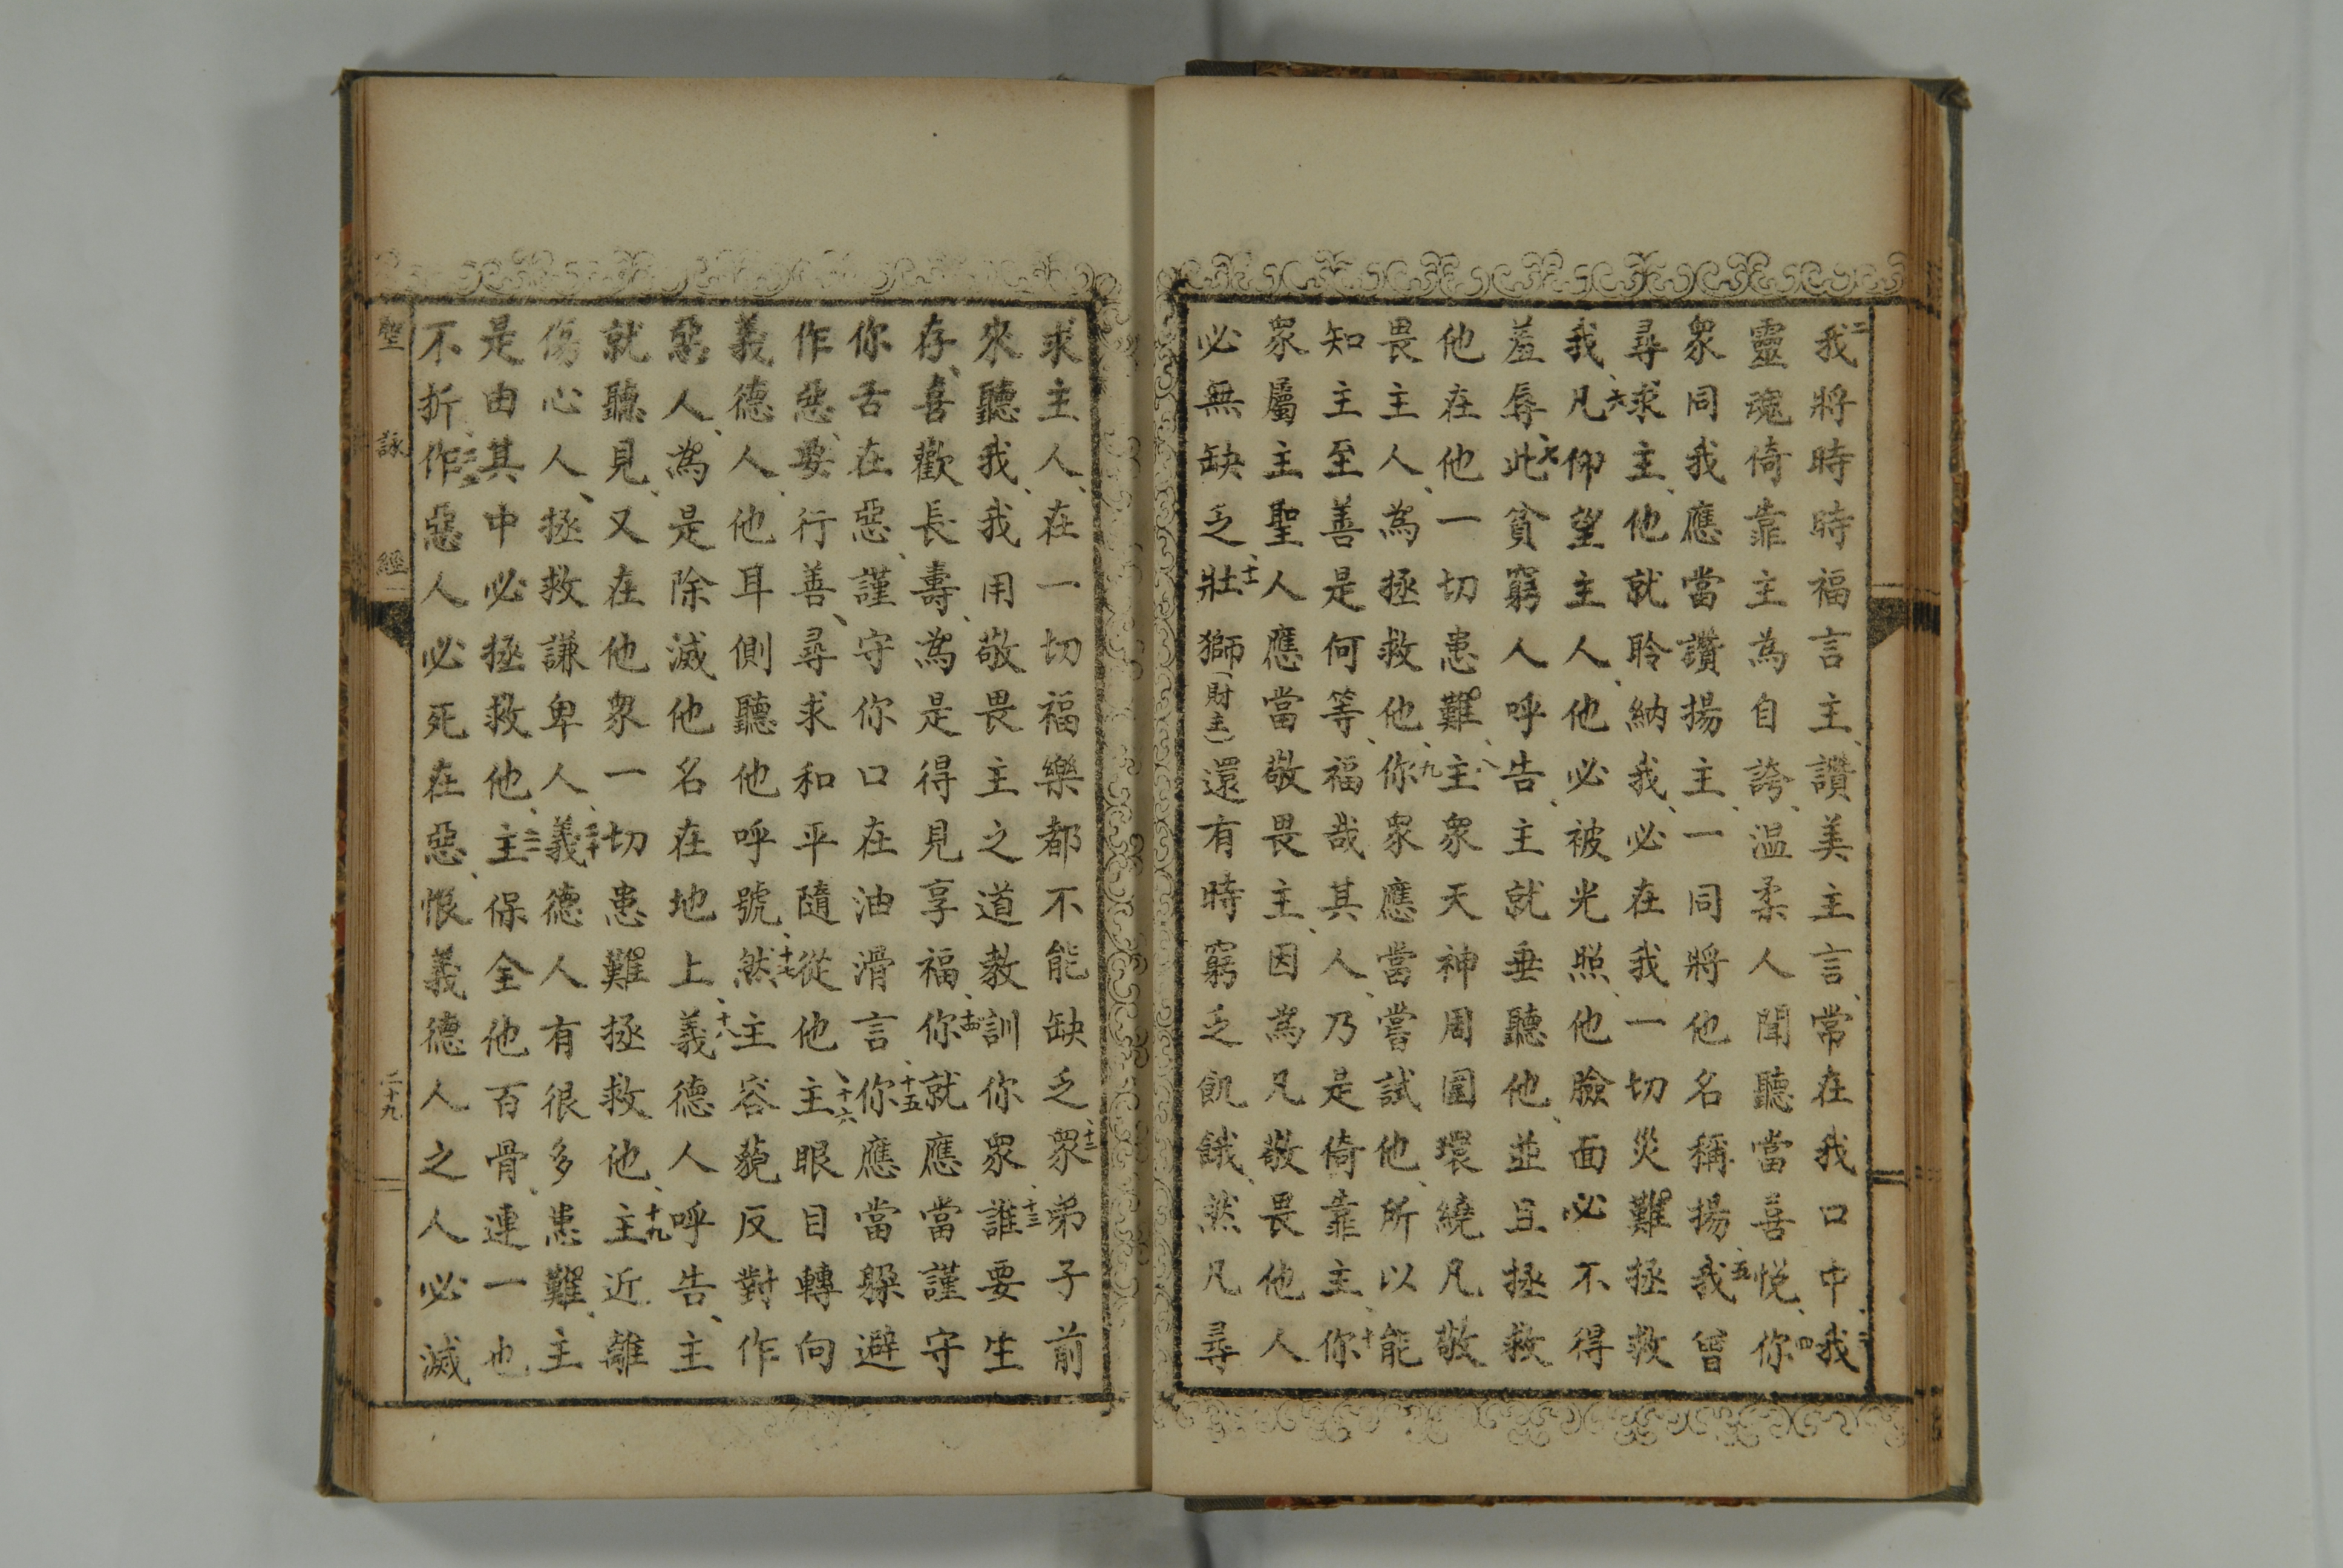 二我將時時福言主、讚美主言、常在我口中、三我
靈魂倚靠主為自誇、温柔人聞聽當喜悦、四你
衆同我應當讚揚主、一同將他名稱揚、五我曾
尋求主、他就聆納我、必在我一切災難拯救
我、六凡仰望主人、他必被光照、他臉面必不得
羞辱、七此貧窮人呼告、主就垂聽他、並且拯救
他在他一切患難、八主衆天神周圍環繞凡敬
畏主人、為拯救他、九你衆應當嘗試他、所以能
知主至善是何等、福哉其人、乃是倚靠主、十你
衆屬主聖人應當敬畏主、因為凡敬畏他人
必無缺乏、十一壯獅(財主)還有時窮乏飢餓、然凡尋
求主人、在一切福樂都不能缺乏、十二衆弟子前
來聽我、我用敬畏主之道教訓你衆、十三誰要生
存、喜歡長壽、為是得見享福、十四你就應當謹守
你舌在惡、謹守你口在油滑言、十五你應當躱避
作惡、要行善、尋求和平隨從他、十六主眼目轉向
義德人、他耳側聽他呼號、十七然主容藐反對作
惡人、為是除滅他名在地上、十八義德人呼告、主
就聽見、又在他衆一切患難拯救他、十九主近離
傷心人、拯救謙卑人、二十義德人有很多患難、主
是由其中必拯救他、二一主保全他百骨、連一也
不折、二二作惡人必死在惡、恨義德人之人必滅
聖詠經
二十九